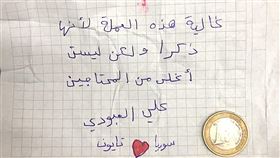 غالية هذه العملة لأنها
ذكرا ولكن ليست
أغلى من المحتاجين
علي العبودي
سوريا ❤ تايوان
1